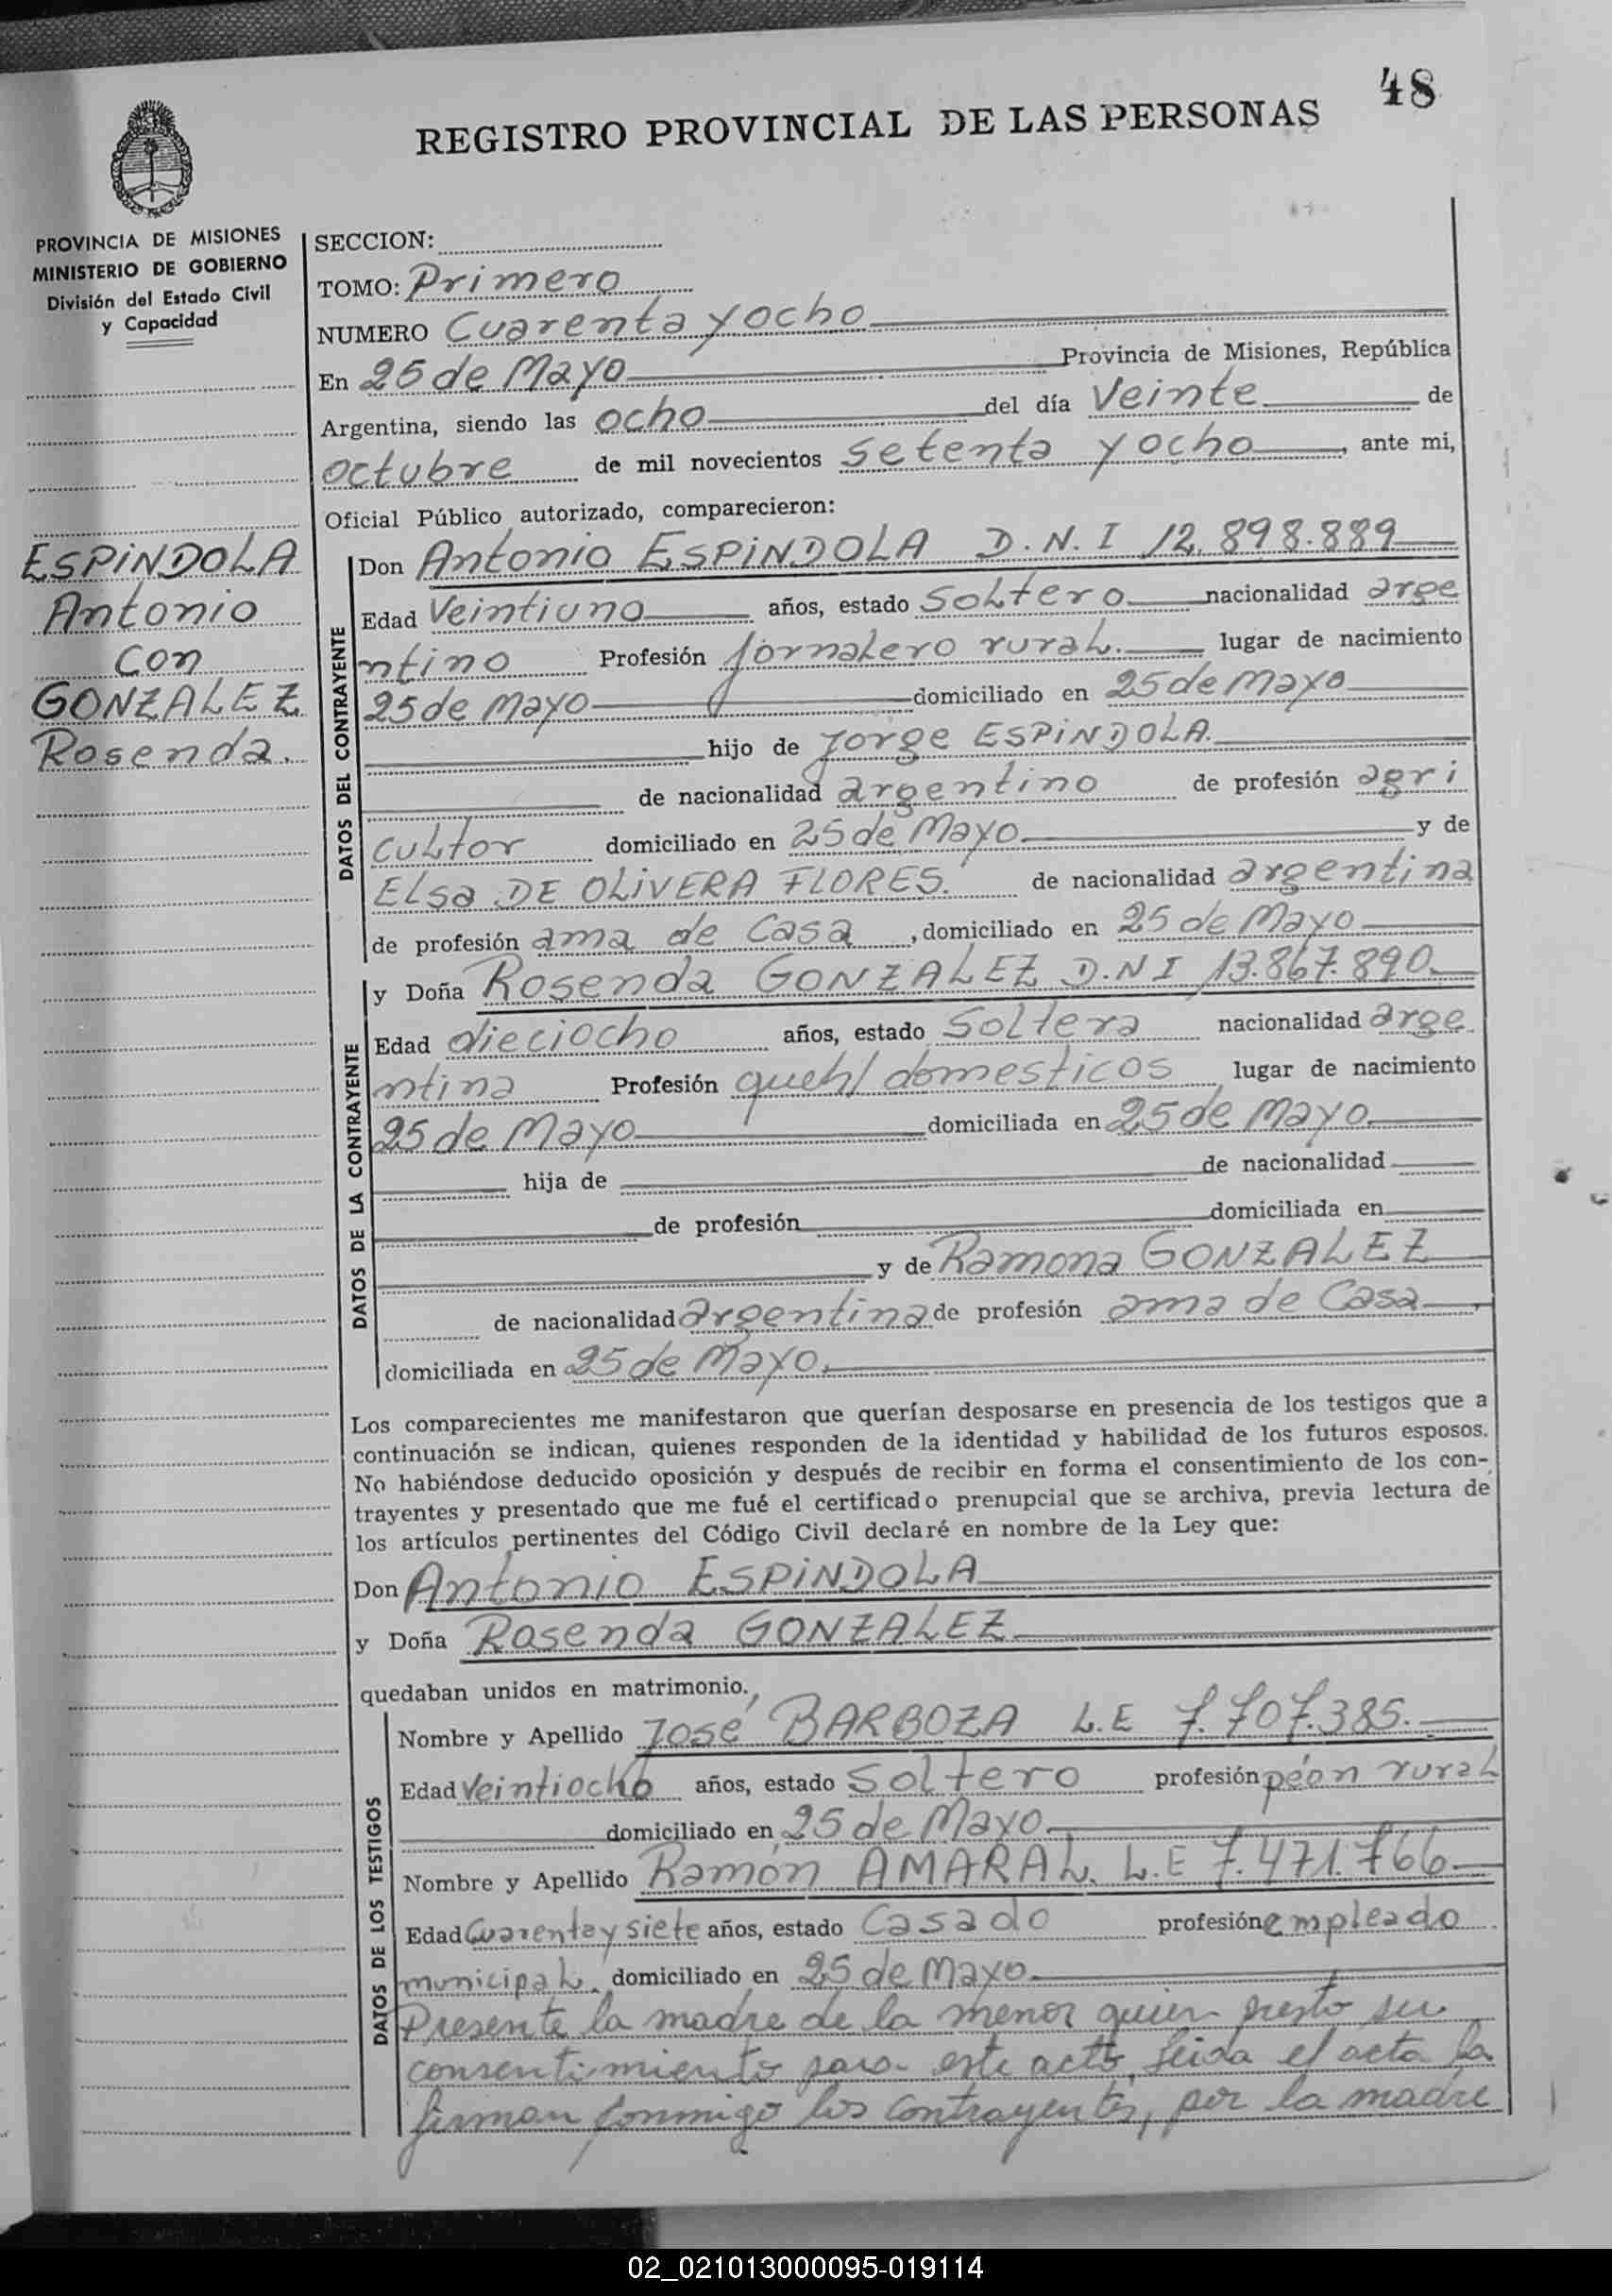 48
REGISTRO PROVINCIAL DE LAS PERSONAS
PROVINCIA DE MISIONES
MINISTERIO DE GOBIERNO
División del Estado Civil
y Capacidad
ESPINDOLA
Antonio
con
GONZALEZ
Rosenda.
SECCION:
TOMO: Primero
NUMERO Cuarenta y ocho
En 25 de Mayo Provincia de Misiones, República
Argentina, siendo las ocho del día Veinte de
octubre de mil novecientos setenta y ocho, ante mi,
Oficial Público autorizado, comparecieron:
DATOS DEL CONTRAYENTE
Don Antonio ESPINDOLA D.N.I 12.898.889
Edad Veintiuno años, estado soltero nacionalidad arge
ntino Profesión jornalero rural. lugar de nacimiento
25 de Mayo domiciliado en 25 de Mayo
hijo de Jorge ESPINDOLA.
de nacionalidad argentino de profesión agri
cultor domiciliado en 25 de Mayo y de
Elsa DE OLIVERA FLORES. de nacionalidad argentina
de profesión ama de casa, domiciliado en 25 de Mayo
DATOS DE LA CONTRAYENTE
y Doña Rosenda GONZALEZ D.N I 13.867.890
Edad dieciocho años, estado Soltera nacionalidad arge
ntina Profesión queh/ domesticos lugar de nacimiento
25 de Mayo domiciliada en 25 de Mayo
hija de de nacionalidad
de profesión domiciliada en
y de Ramona GONZALEZ
de nacionalidad argentina de profesión ama de casa,
domiciliada en 25 de Mayo.
Los comparecientes me manifestaron que querían desposarse en presencia de los testigos que a
continuación se indican, quienes responden de la identidad y habilidad de los futuros esposos.
No habiéndose deducido oposición y después de recibir en forma el consentimiento de los con-
trayentes y presentado que me fué el certificado prenupcial que se archiva, previa lectura de
los artículos pertinentes del Código Civil declaré en nombre de la Ley que:
Don Antonio ESPINDOLA
y Doña Rosenda GONZALEZ
quedaban unidos en matrimonio.
DATOS DE LOS TESTIGOS
Nombre y Apellido José BARBOZA L.E 7.707.385.
Edad Veintiocho años, estado Soltero profesión peón rural
domiciliado en 25 de Mayo
Nombre y Apellido Ramón AMARAL. L.E 7.471.766
Edad Cuarenta y siete años, estado Casado profesión empleado
municipal. domiciliado en 25 de Mayo
Presente la madre de la menor quien prestó su
consentimiento para este acto, leida el acta la
firman conmigo los contrayentes, por la madre
02_021013000095-019114